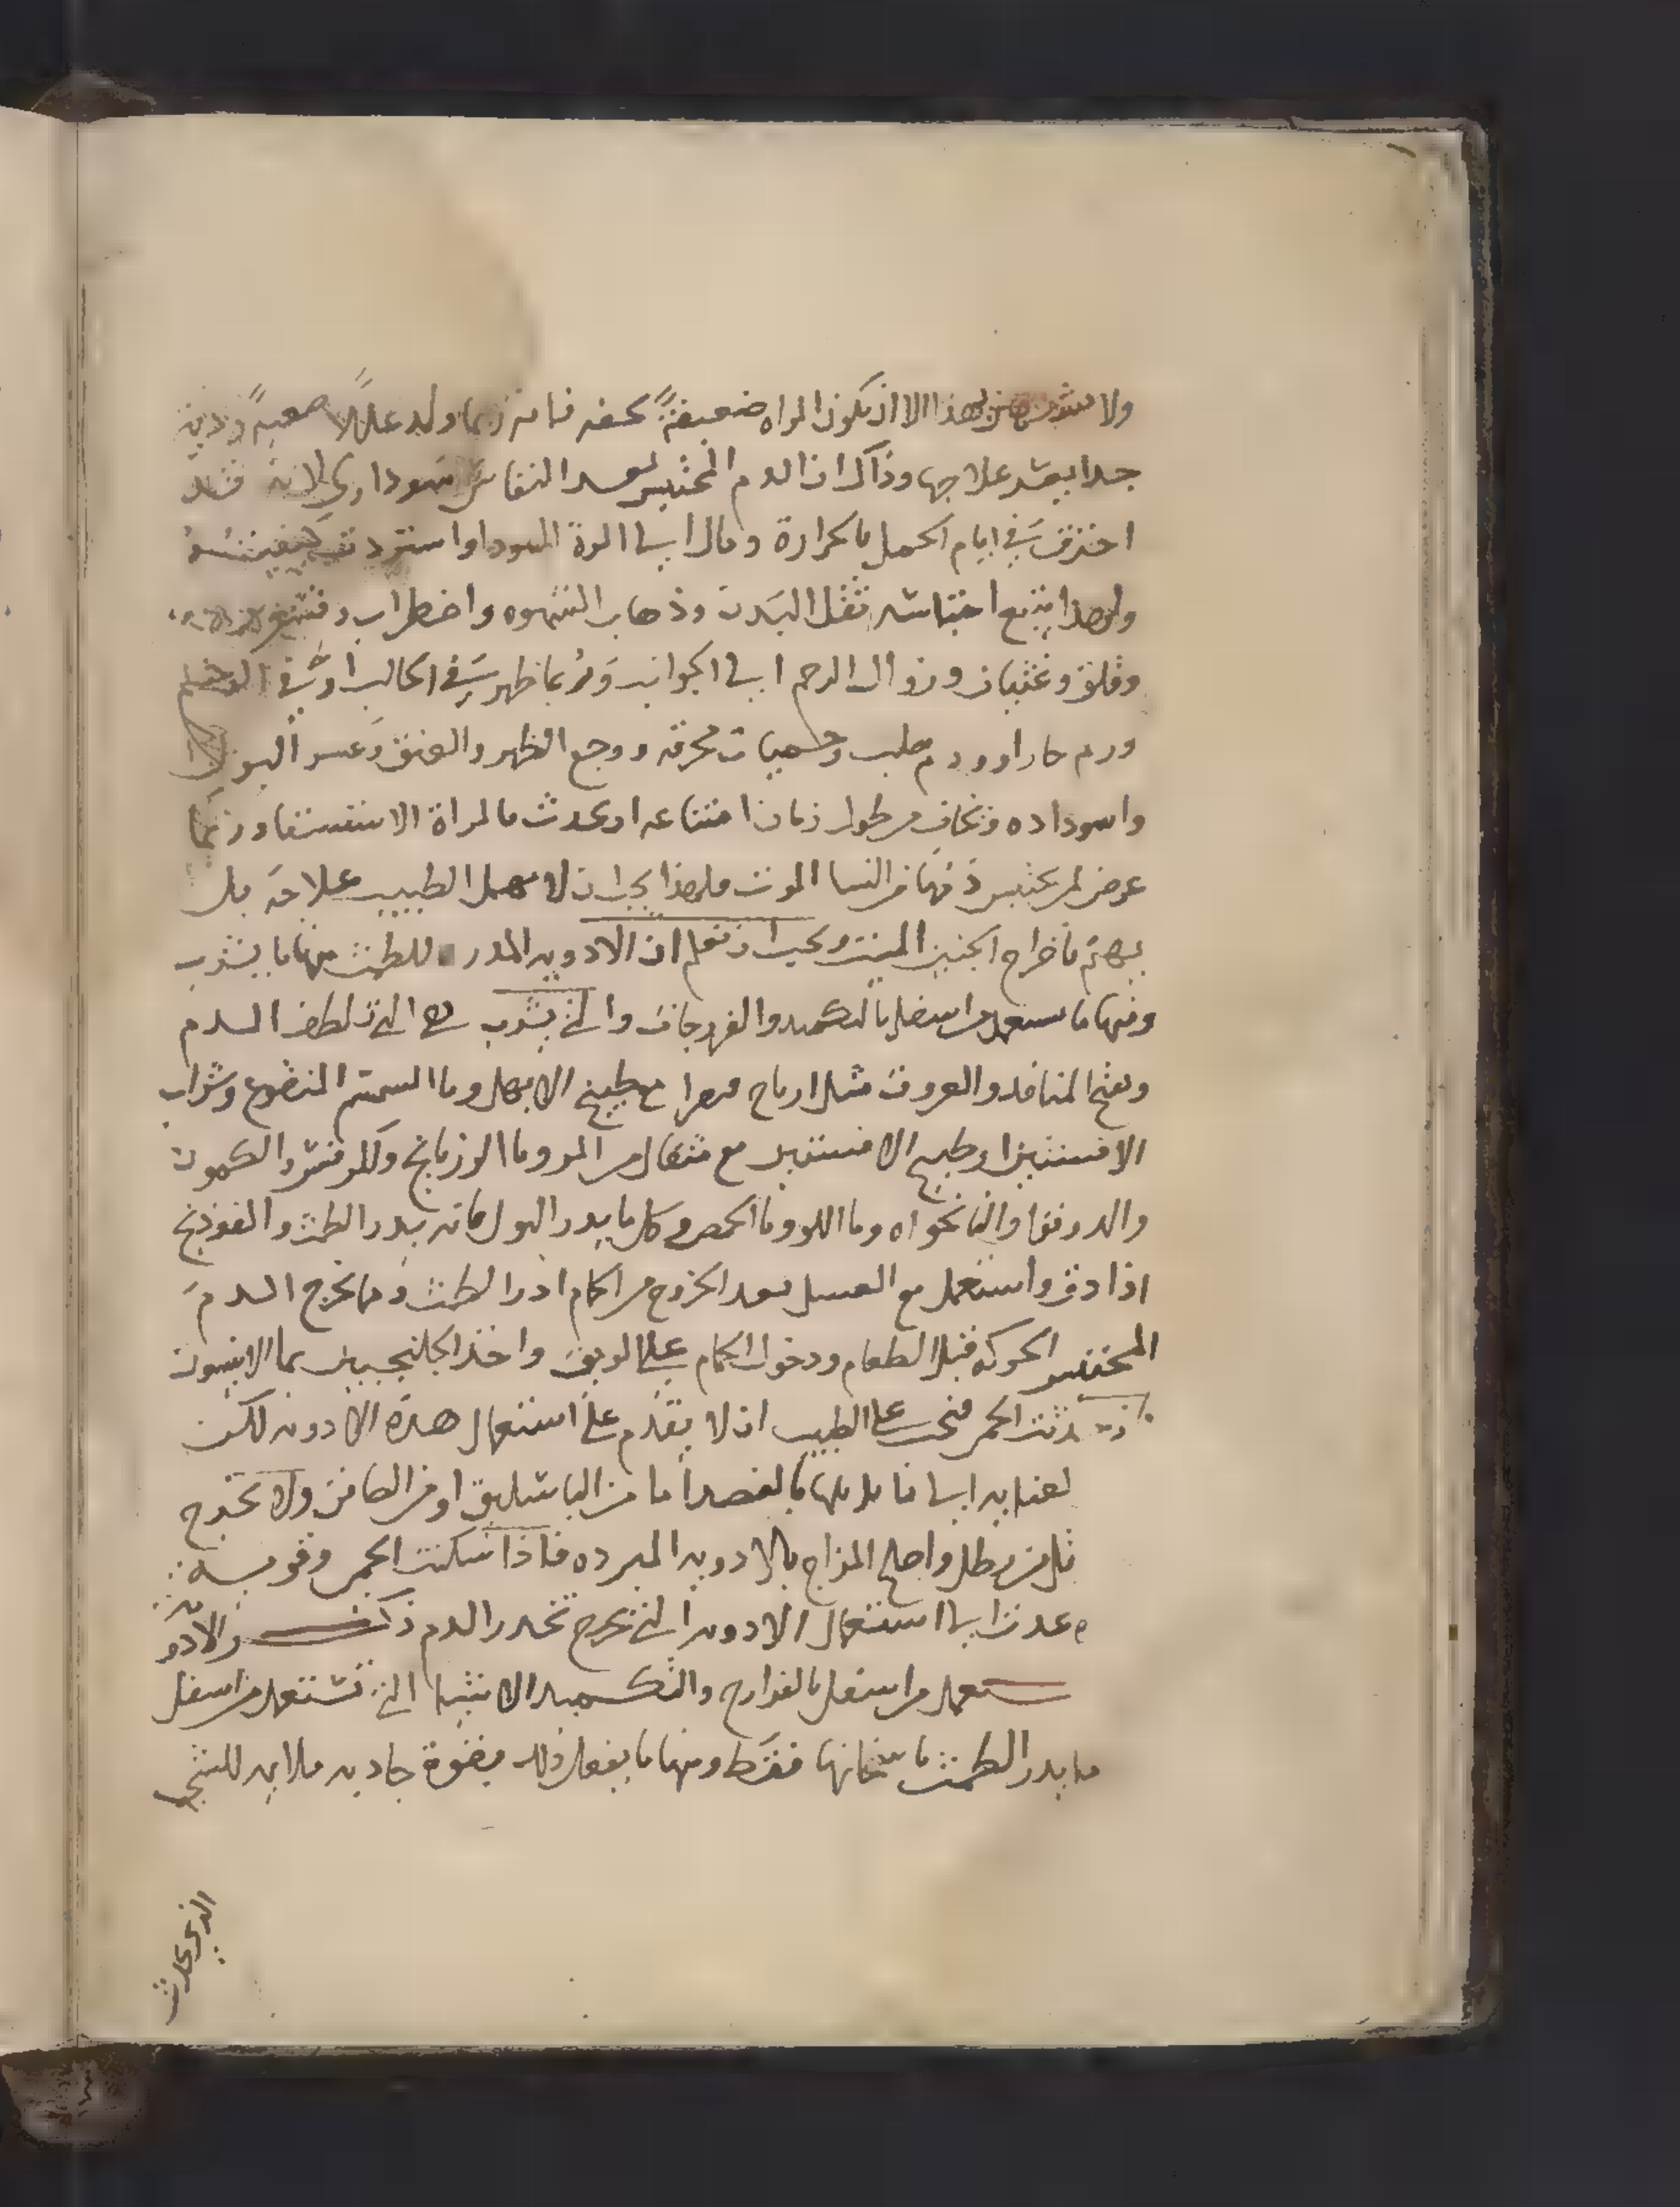 ولا الا ان تكون المراه ضعيفةً نحيفه فانه ربما ولد عللاً صعبةً ردية
جدا يعسر علاجها وذاك ان الدم المحتبس بعد النفاس سوداوي لانه قد
احترق في ايام الحمل بالحرارة ومال الى المرة السودا واستردت كيفيته
ولهذا يتبع احتباسه ثقل البدن وذهاب الشهوه واضطراب وقشعريرة
وقلق وغثيان وزوال الرحم الى الجوانب وربما ظهر في الحالب او في
ورم حار او ورم صلب وحميات محرقه ووجع الظهر والعنق وعسر البول
واسوداده ويخاف من طول زمان امتناعه او يحدث بالمراة الاستسقا وربما
عرض لمن يحتبس دمها من النسا الموت فلهذا يجب ان لا يهمل الطبيب علاجه بل
يهتم باخراج الجنين الميت ويجب ان تعلم ان الادويه المدره للطمث منها ما يشرب
ومنها ما يستعمل من اسفل بالتكميد والفرزجات والتي يشرب هي التي تلطف الدم
وتفتح المنافد والعروق مثل ايارج فيقرا مع طبيخ الابهل وما السمسم المنقوع وشراب
الافسنتين او طبيخ الافسنتين مع مثقال من المر وما الرازيانج والكرفس والكمون
والدوقوا والنانخواه وما اللوبيا وما الحمص وكل ما يدر البول فانه يدر الطمث والفوذنج
اذا دق واستعمل مع العسل بعد الخروج من الحمام ادر الطمث ومما يخرج الدم
المحتبس الحركه قبل الطعام ودخول الحمام على الريق واخذ الجلنجبين بما الانيسون
حدثت الحمى فيجب على الطبيب ان لا يقدم على استعمال هذه الادويه لكن
بالفصد اما من الباسليق او من الصافن ولا تخرج
المزاج بالادويه المبرده فاذا سكنت الحمى
عدت الى استعمال الادويه التي تخرج تحدر الدم والادويه
تستعمل من اسفل بالفرازج والتكميد الاشيا التي تستعمل من اسفل
ما يدر الطمث باسخانها فقط ومنها ما يفعل ذلك بقوة جاذبه
الذي يحدث